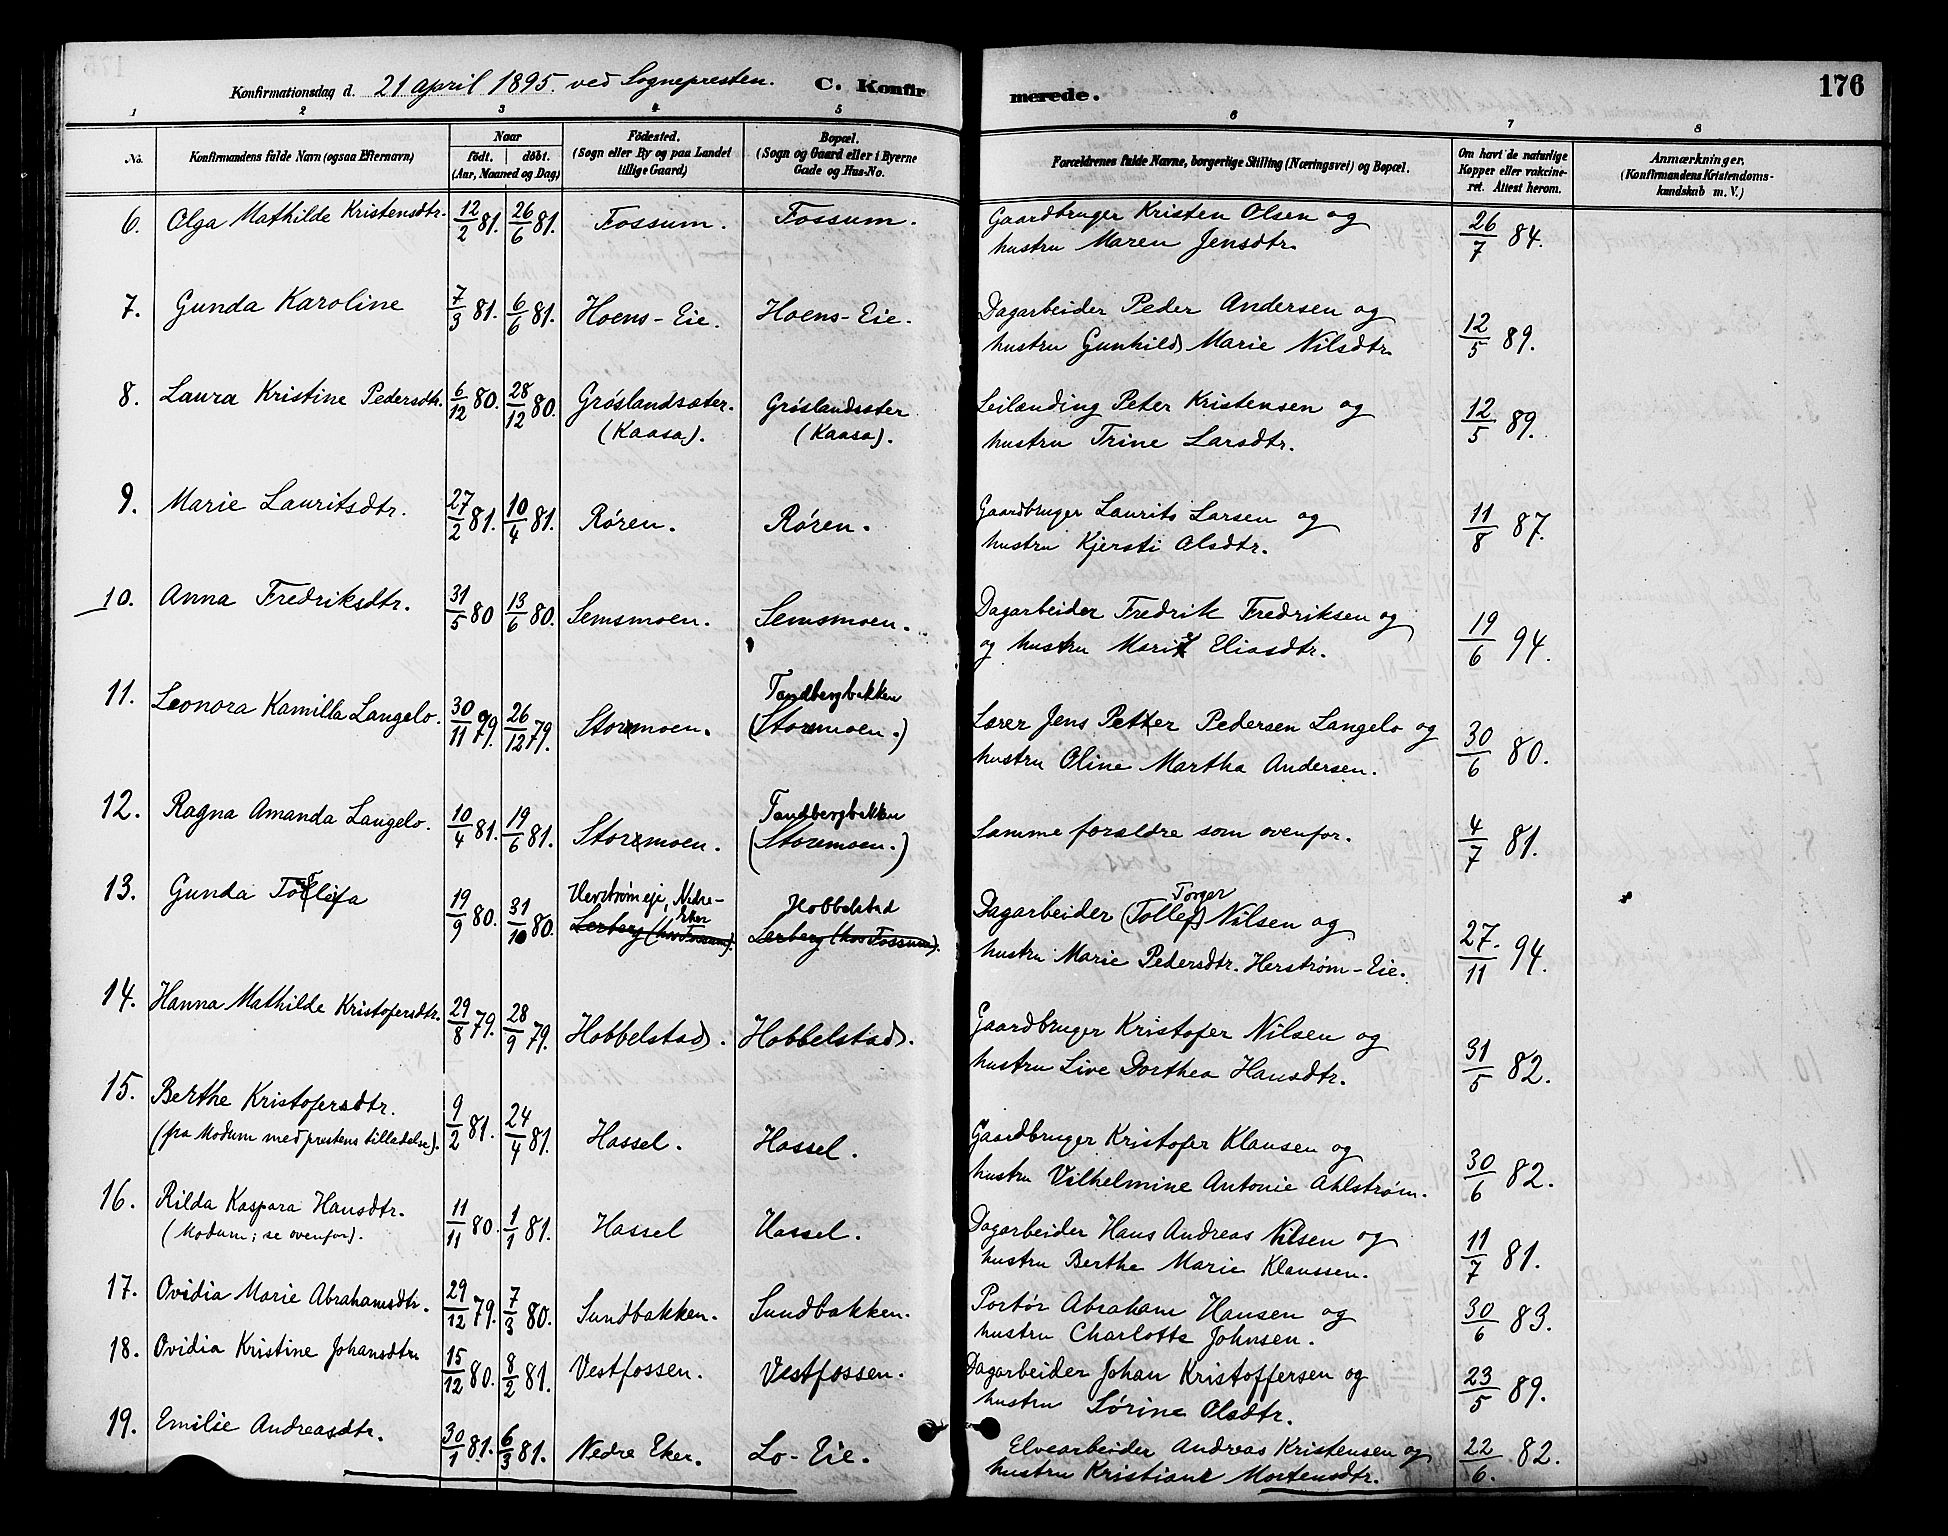 Konfirmationsdag d. 21 april 1895. ved Sognepresten. C. Konfirmerede. 176
1 2 3 4 5 6 7 8
No.
Konfirmandens fulde Navn (ogsaa Efternavn)
Naar
født. døbt.
(Aar, Maaned og Dag)
Fødested.
(Sogn eller By og paa Landet
tillige Gaard)
Bopæl.
(Sogn og Gaard eller i Byerne
Gade og Hus-No.
Forældrenes fulde Navne, borgerlige Stilling (Næringsvei) og Bopæl.
Om havt de naturlige
Kopper eller vakcine-
ret. Attest herom.
Anmærkninger.
(Konfirmandens Kristendoms-
kundskab m. V.)
6. Olga Mathilde Kristensdtr. 12/2 81. 26/6 81. Fossum. Fossum. Gaardbruger Kristen Olsen og 26/7 84.
hustru Maren Jensdtr.
7. Gunda Karoline 7/3 81. 6/6 81. Hoens-Eie. Hoens-Eie. Dagarbeider Peder Andersen og 12/5 89.
hustru Gunhild Marie Nilsdtr.
8. Laura Kristine Pedersdtr. 6/12 80. 28/12 80. Grøslandsæter. Grøslandsæter Leilænding Peter Kristensen og 12/5 89.
(Kaasa). (Kaasa). hustru Trine Larsdtr.
9. Marie Lauritsdtr. 27/2 81. 10/4 81. Røren. Røren. Gaardbruger Laurits Larsen og 11/8 87.
hustru Kjersti Olsdtr.
10. Anna Fredriksdtr. 31/5 80 13/6 80. Semsmoen. Semsmoen. Dagarbeider Fredrik Fredriksen og 19/6 94.
og hustru Marie Eliasdtr.
11. Leonora Kamilla Langelo. 30/11 79. 26/12 79. Storemoen. Tandbergbakken
(Storemoen.) Lærer Jens Petter Pedersen Langelo og 30/6 80.
hustru Oline Martha Andersen.
12. Ragna Amanda Langelo. 10/4 81. 19/6 81. Storemoen. Tandbergbakken
(Storemoen.) Samme forældre som ovenfor. 4/7 81.
13. Gunda 19/9 80. 31/10 80. Herstrøm eje, Nedre-
Eker
Lerberg (hos Fossum). Hobbelstad
Lerberg (hos Fossum). Torger
Dagarbeider (Tollef) Nilsen og 27./11 94.
hustru Marie Pedersdtr. Herstrøm-Eie.
14. Hanna Mathilde Kristofersdtr. 29/8 79. 28/9 79. Hobbelstad. Hobbelstad. Gaardbruger Kristofer Nilsen og 31/5 82.
hustru Live Dorthea Hansdtr.
15. Berthe Kristofersdtr. 9/2 81. 24/4 81. Hassel. Hassel. Gaardbruger Kristofer Klausen og 30/6 82.
(fra Modum med prestens tilladelse). hustru Vilhelmine Antonie Ahlstrøm.
16. Rilda Kaspara Hansdtr. 11/11 80. 1/1 81. Hassel Hassel. Dagarbeider Hans Andreas Nilsen og 11/7 81.
(Modum; se ovenfor). hustru Berthe Marie Klaussen.
17. Ovidia Marie Abrahamsdtr. 29/12 79. 7/3 80. Sundbakken. Sundbakken. Portør Abraham Hansen og 30/6 83.
hustru Charlotte Johnsen.
18. Ovidia Kristine Johansdtr. 15/12 80. 8/2 81. Vestfossen. Vestfossen. Dagarbeider Johan Kristoffersen og 23/5 89.
hustru Sørine Olsdtr.
19. Emilie Andreasdtr. 30/1 81. 6/3 81. Nedre Eker. Lo-Eie. Elvearbeider Andreas Kristensen og 22/6. 82.
hustru Kristiane Mortensdtr.